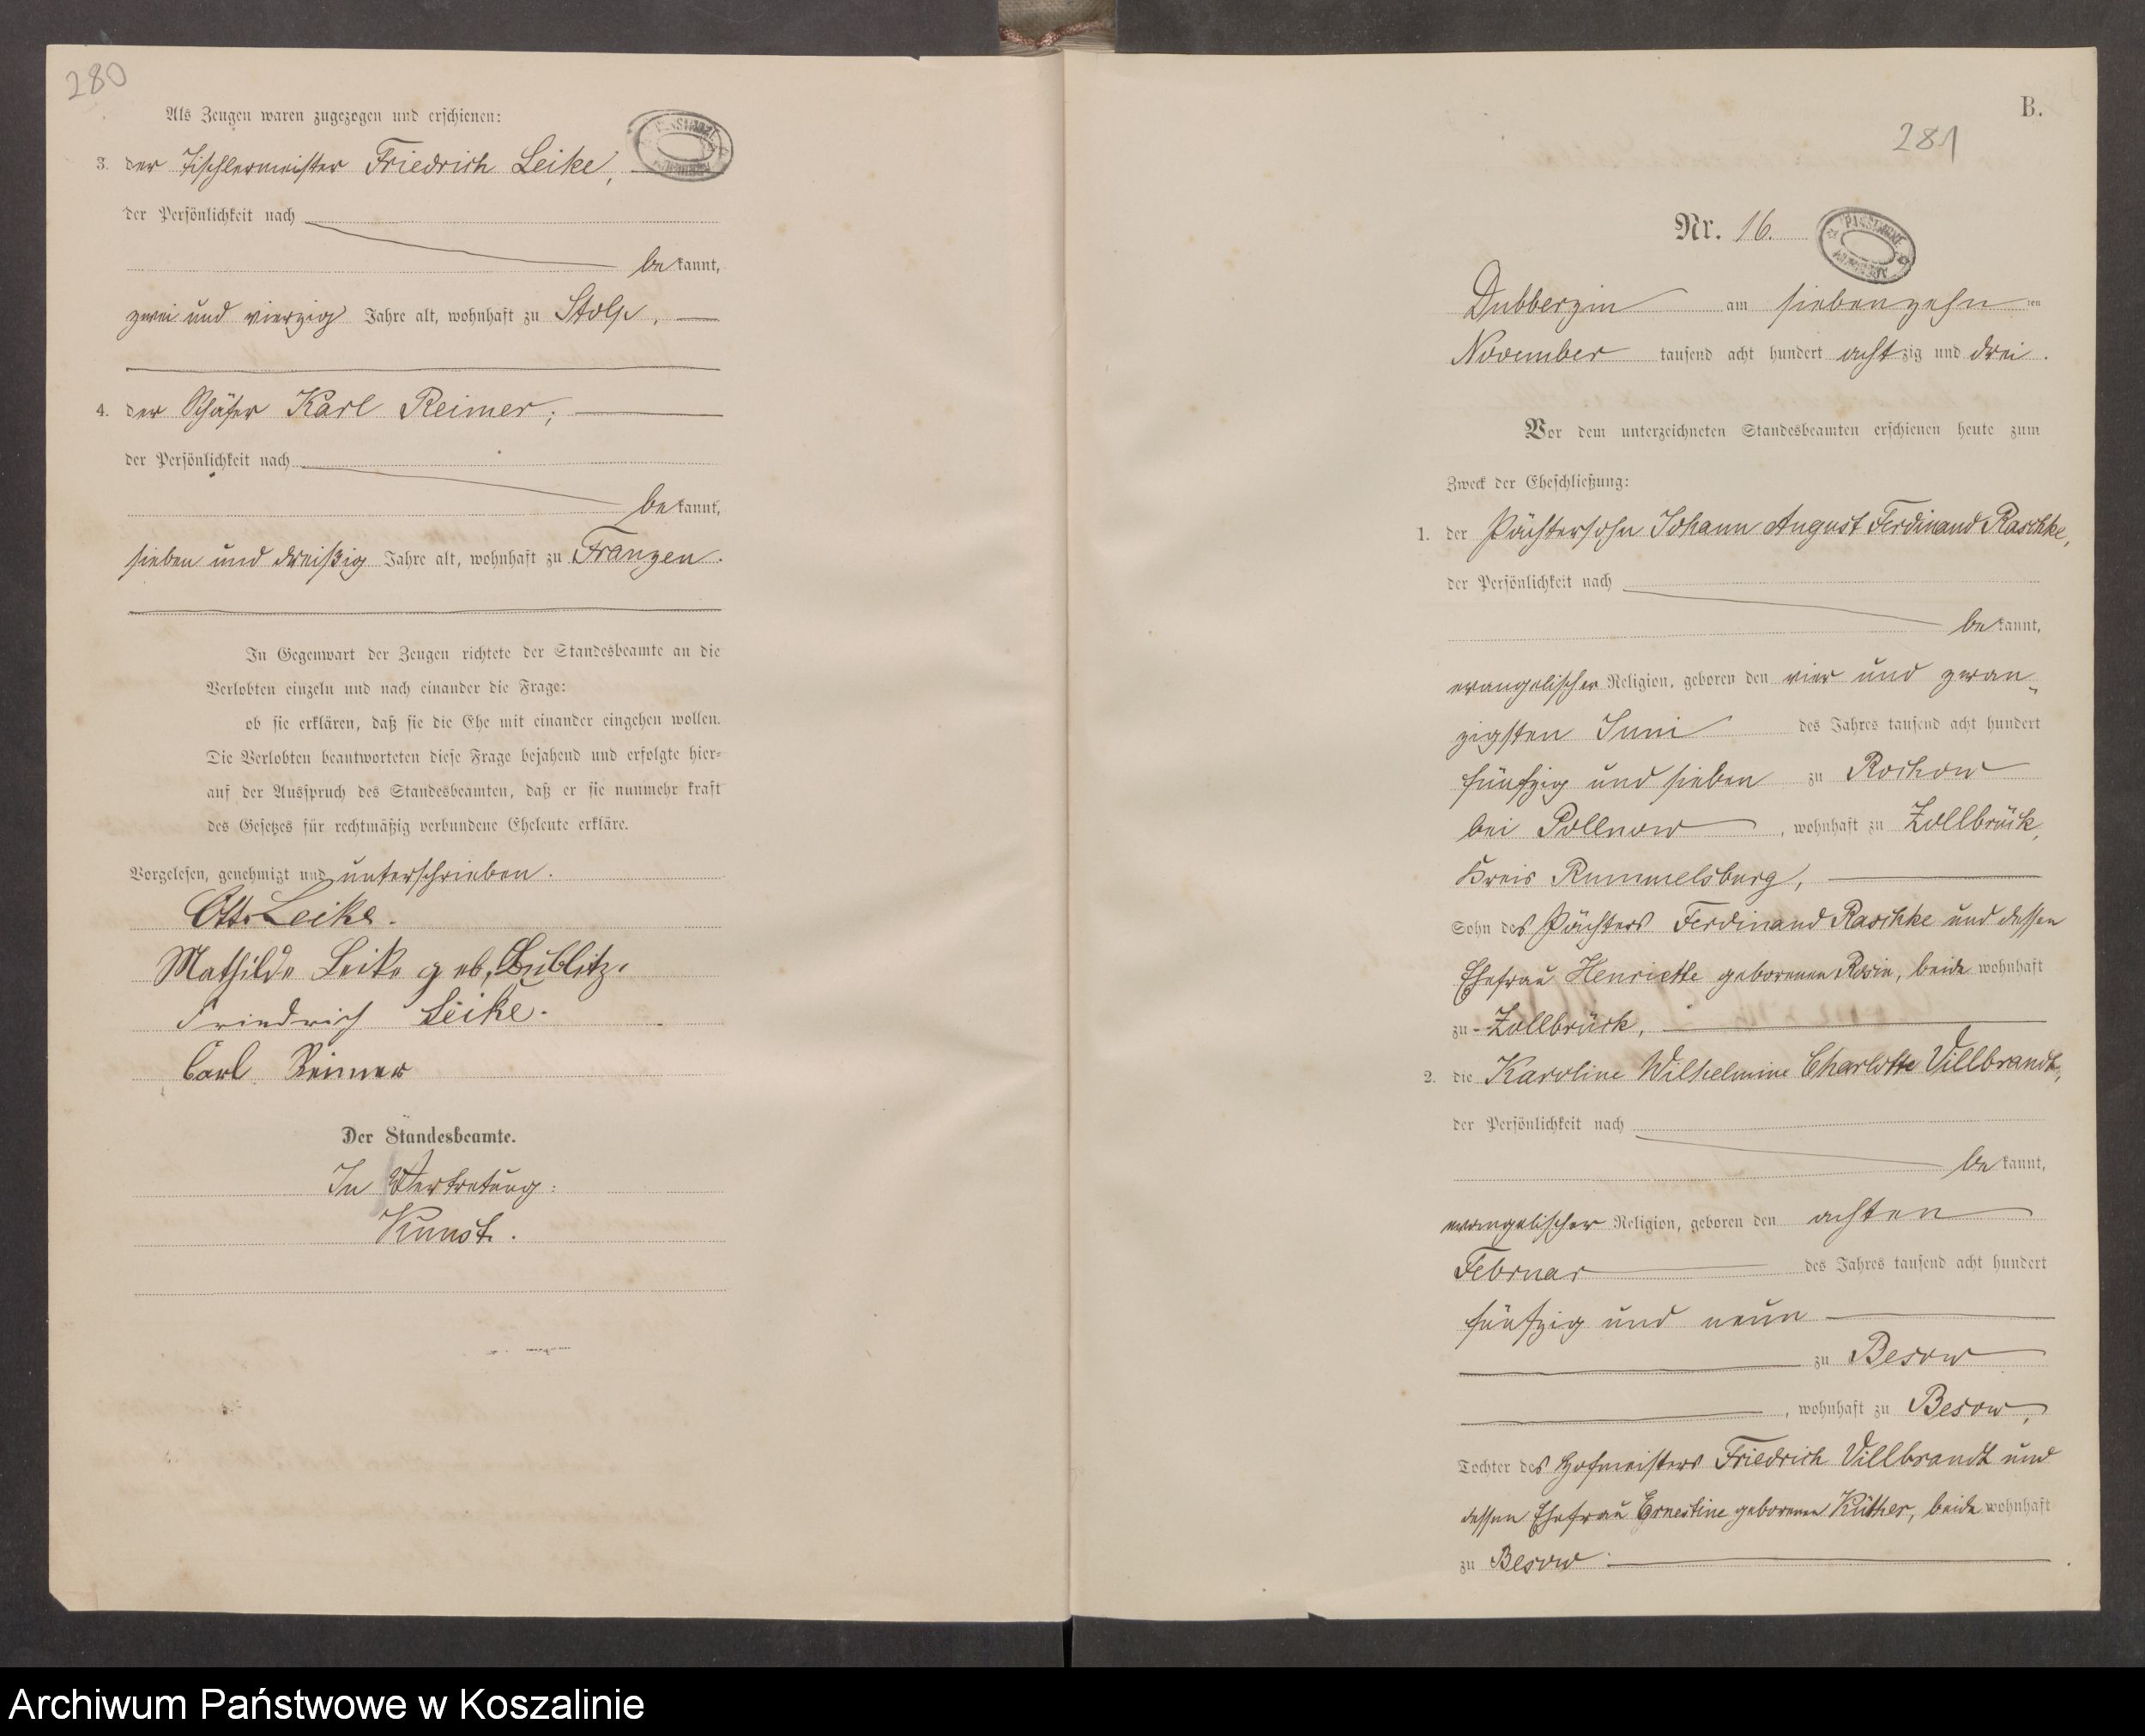 280
Als Zeugen waren zugezogen und erschienen:
3. der Tischlermeister Friedrich Leike,
der Persönlichkeit nach
bekannt,
zwei und vierzig Jahre alt, wohnhaft zu Stolp,
4. der Schäfer Karl Reimer,
der Persönlichkeit nach
bekannt,
sieben und dreißig Jahre alt, wohnhaft zu Franzen.
In Gegenwart der Zeugen richtete der Standesbeamte an die
Verlobten einzeln und nach einander die Frage:
ob sie erklären, daß sie die Ehe mit einander eingehen wollen.
Die Verlobten beantworteten diese Frage bejahend und erfolgte hier-
auf der Ausspruch des Standesbeamten, daß er sie nunmehr kraft
des Gesetzes für rechtmäßig verbundene Eheleute erkläre.
Vorgelesen, genehmigt und unterschrieben.
Otto Leike.
Mathilde Leike geb. Lüblitz.
Friedrich Leike.
Carl Reimer
Der Standesbeamte.
In Vertretung:
Kunst.
B.
281
Nr. 16.
Dubberzin am siebenzehn ten
November tausend acht hundert achtzig und drei.
Vor dem unterzeichneten Standesbeamten erschienen heute zum
Zweck der Eheschließung:
1. der Pächtersohn Johann August Ferdinand Raschke,
der Persönlichkeit nach
bekannt,
evangelischer Religion, geboren den vier und zwan-
zigsten Juni des Jahres tausend acht hundert
fünfzig und sieben zu Rochow
bei Pollnow, wohnhaft zu Zollbrück,
Kreis Rummelsburg,
Sohn des Pächters Ferdinand Raschke und dessen
Ehefrau Henriette geborenen Rosin, beide wohnhaft
zu Zollbrück,
2. die Karoline Wilhelmine Charlotte Villbrandt,
der Persönlichkeit nach
bekannt,
evangelischer Religion, geboren den achten
Februar des Jahres tausend acht hundert
fünfzig und neun
zu Besow
, wohnhaft zu Besow,
Tochter des Hofmeisters Friedrich Villbrandt und
dessen Ehefrau Ernestine geborenen Küther, beide wohnhaft
zu Besow.
Archiwum Państwowe w Koszalinie